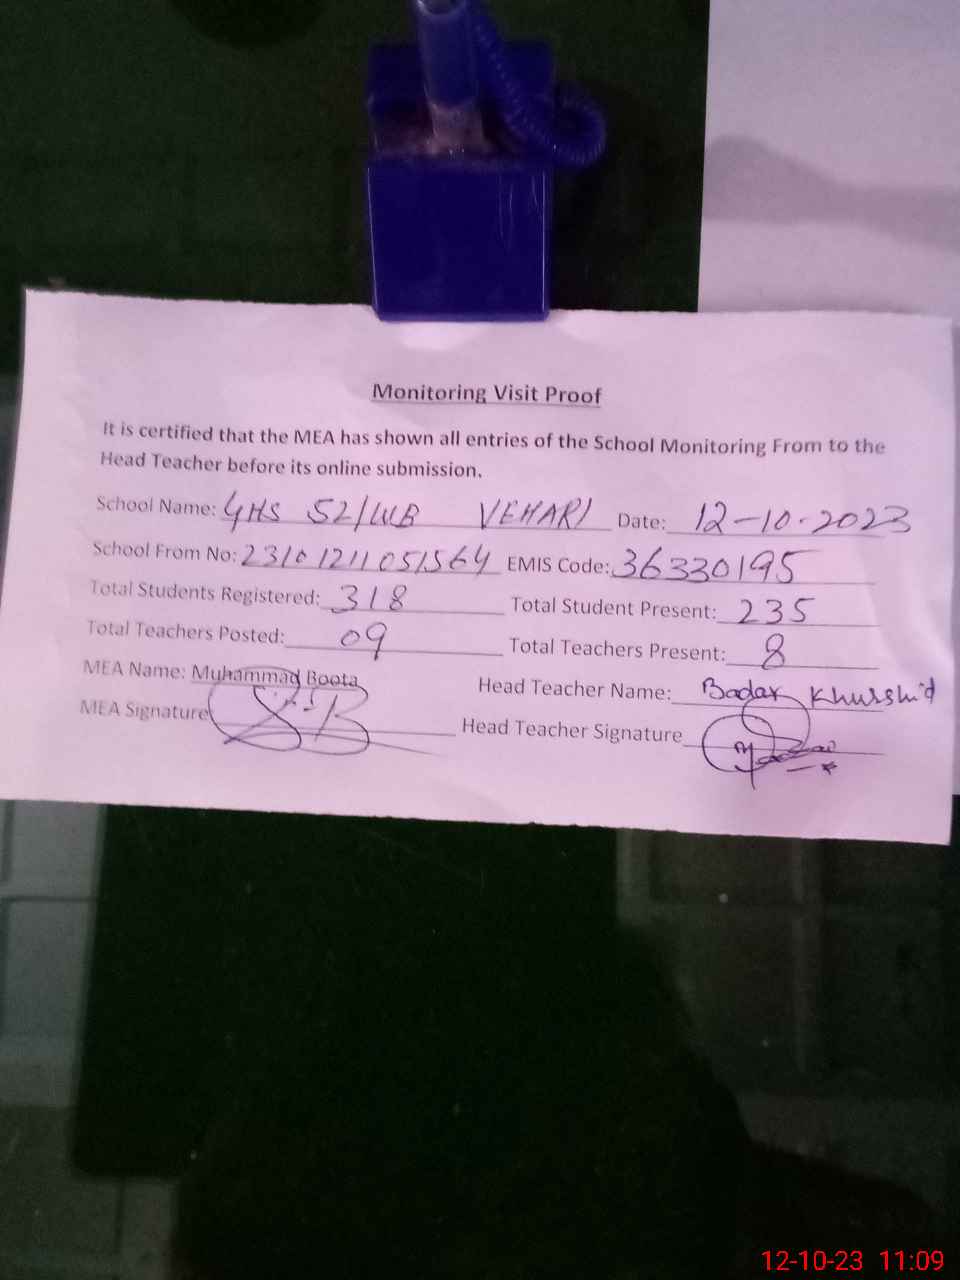 Monitoring Visit Proof
It is certified that the MEA has shown all entries of the School Monitoring From to the
Head Teacher before its online submission.
School Name: GHS 52/WB VEHARI Date: 12-10-2023
School From No: 23101211051564 EMIS Code: 36330195
Total Students Registered: 318 Total Student Present: 235
Total Teachers Posted: 09 Total Teachers Present: 8
MEA Name: Muhammad Boota Head Teacher Name: Badar Khurshid
MEA Signature Head Teacher Signature
12-10-23 11:09